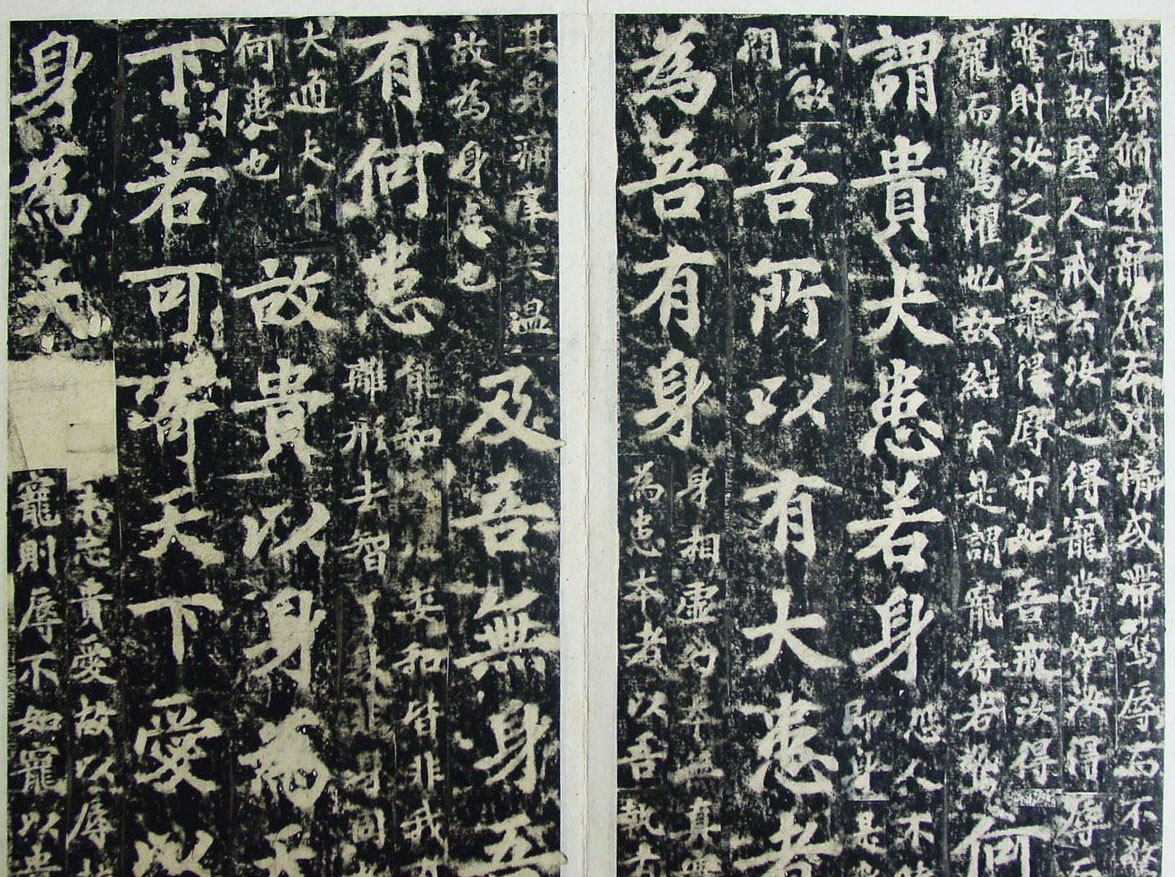 寵辱循環寵 凡情或滯驚辱而不
寵故聖人戒云汝之得寵當如汝得辱而
驚則汝之失寵得辱亦如吾戒汝得
寵而驚懼也故結云是謂寵辱若驚 何
謂貴大患若身 恐人不
即
下故
問
吾所以有大患者
為吾有身 身相虛幻本無真
為患本者以吾執有
其身痛
故為身患也
及吾無身吾
有何患 能知 妄知皆非我
離形去智了本非身同
大通夫有
何患也
故貴以身為天
下若可寄天下愛以
身為天
未忘貴愛故以辱
寵則辱不如寵以貴